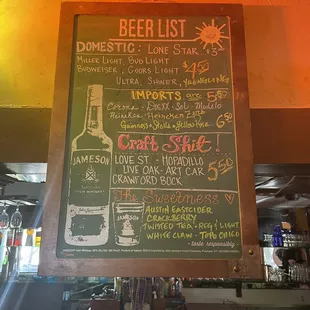 BEER LIST
DOMESTIC: LONE STAR $3
MILLER LIGHT, BUD LIGHT
BUDWEISER, COORS LIGHT $4.50
ULTRA, SHINER, YUENGLING
IMPORTS are 5.50
Corona - Dos XX - Sol - Modelo
Heineken - Heineken
Guinness - Stella - Yellow 6.50
Craft Shit!
LOVE ST - HOPADILLO
LIVE OAK - ART CAR 5.50
CRAWFORD BOCK
JAMESON
The Sweetness
AUSTIN EASTCIDER
CRACKBERRY
TWISTED TEA - REG & LIGHT
WHITE CLAW - TOPO CHICO
JAMESON
taste responsibly